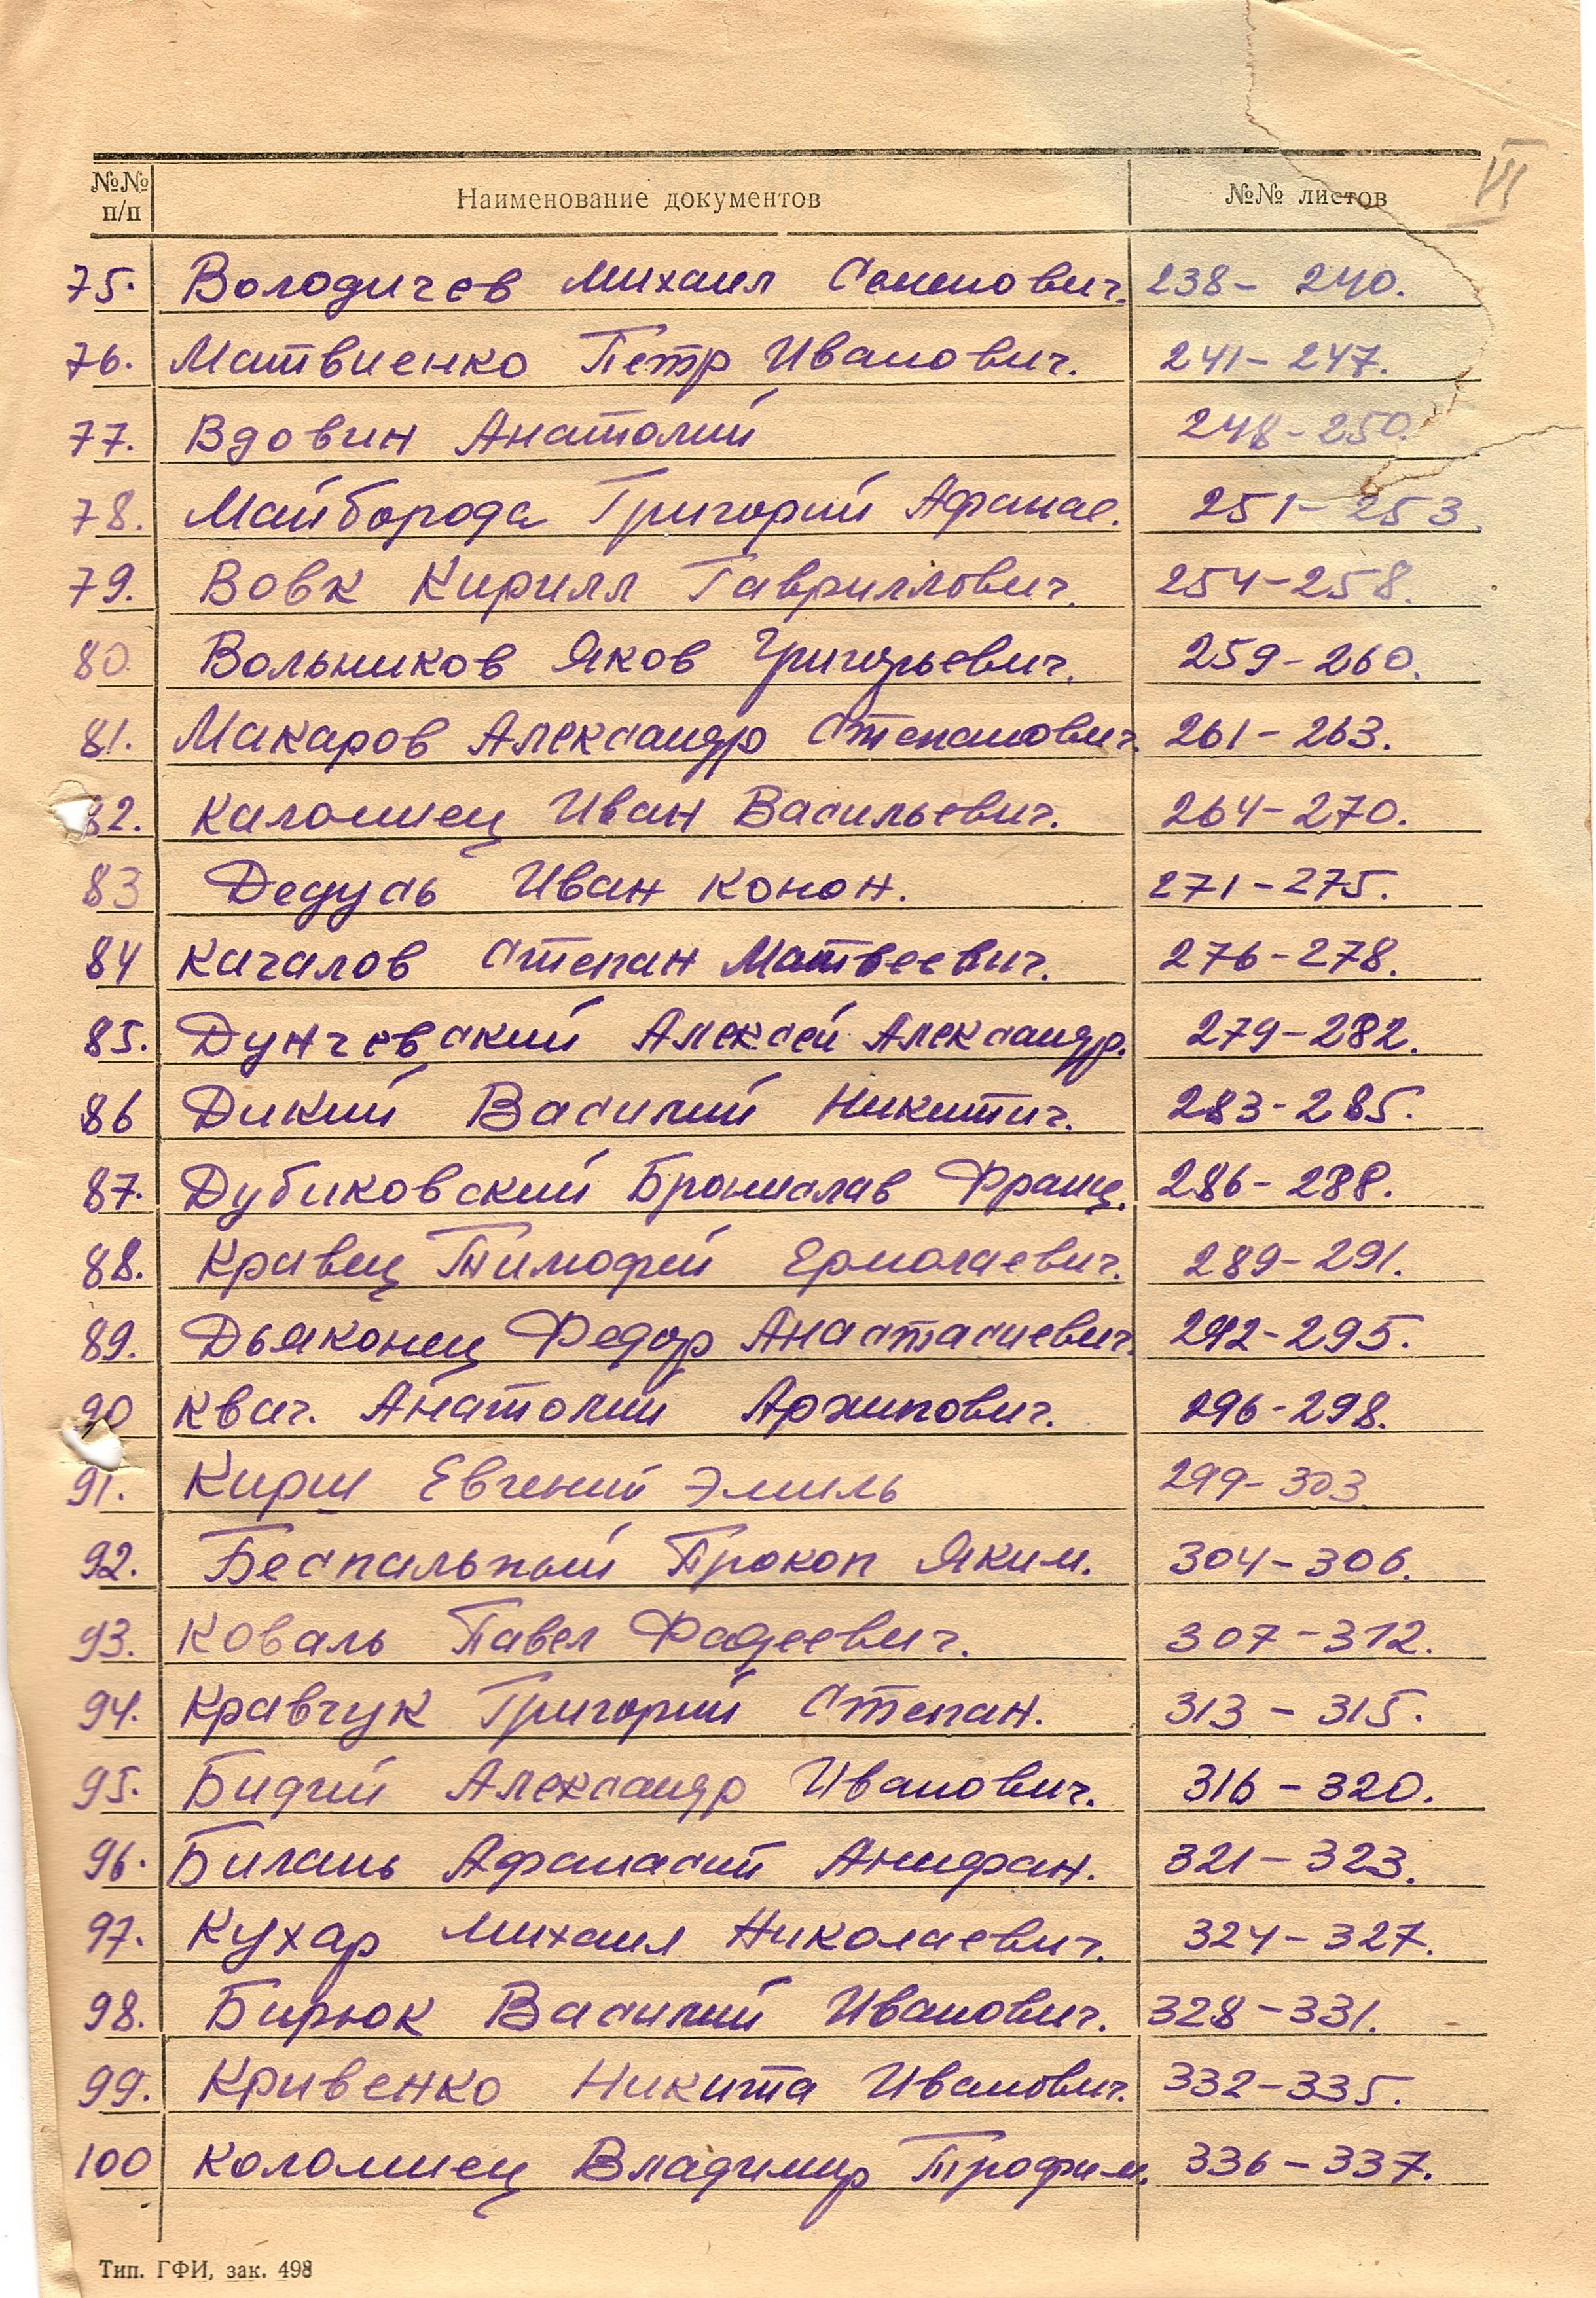 VI
№№ п/п Наименование документов №№ листов
75. Володичев Михаил Семенович. 238 – 240.
76. Матвиенко Петр Иванович. 241 – 247.
77. Вдовин Анатолий 248 – 250.
78. Майборода Григорий Афанас. 251 – 253.
79. Вовк Кирилл Гавриллович. 254 – 258.
80. Вольников Яков Григорьевич. 259 – 260.
81. Макаров Александр Степанович. 261 – 263.
82. Каломиец Иван Васильевич. 264 – 270.
83 Дедусь Иван Конон. 271 – 275.
84 Качалов Степан Матвеевич. 276 – 278.
85. Дунчевский Алексей Александр. 279 – 282.
86 Дикий Василий Никитич. 283 – 285.
87. Дубиковский Бронислав Франц. 286 – 288.
88. Кравец Тимофей Ермолаевич. 289 – 291.
89. Дьяконец Федор Анастасиевич. 292 – 295.
90 Квач. Анатолий Архипович. 296 – 298.
91. Кирш Евгений Эмиль 299 – 303.
92. Беспальный Прокоп Яким. 304 – 306.
93. Коваль Павел Фадеевич. 307 – 312.
94. Кравчук Григорий Степан. 313 – 315.
95. Александр Иванович. 316 – 320.
96. Билань Афанасий 321 – 323.
97. Кухар Михаил Николаевич. 324 – 327.
98. Бирюк Василий Иванович. 328 – 331.
99. Кривенко Никита Иванович. 332 – 335.
100 Коломиец Владимир Трофим. 336 – 337.
Тип. ГФИ, зак. 498